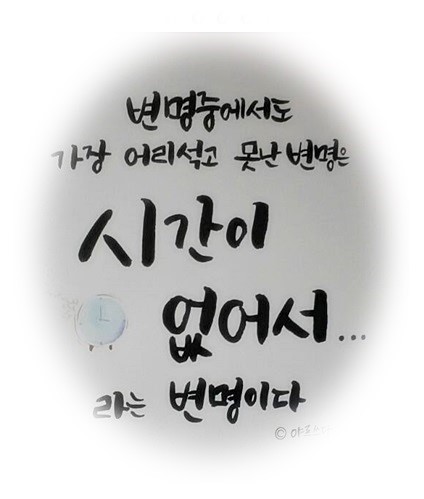 변명중에서도
가장 어리석고 못난 변명은
시간이
없어서...
라는 변명이다
©